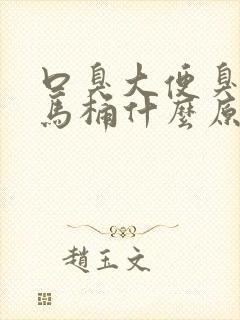 口臭大便臭
馬桶什麼原
趙玉文